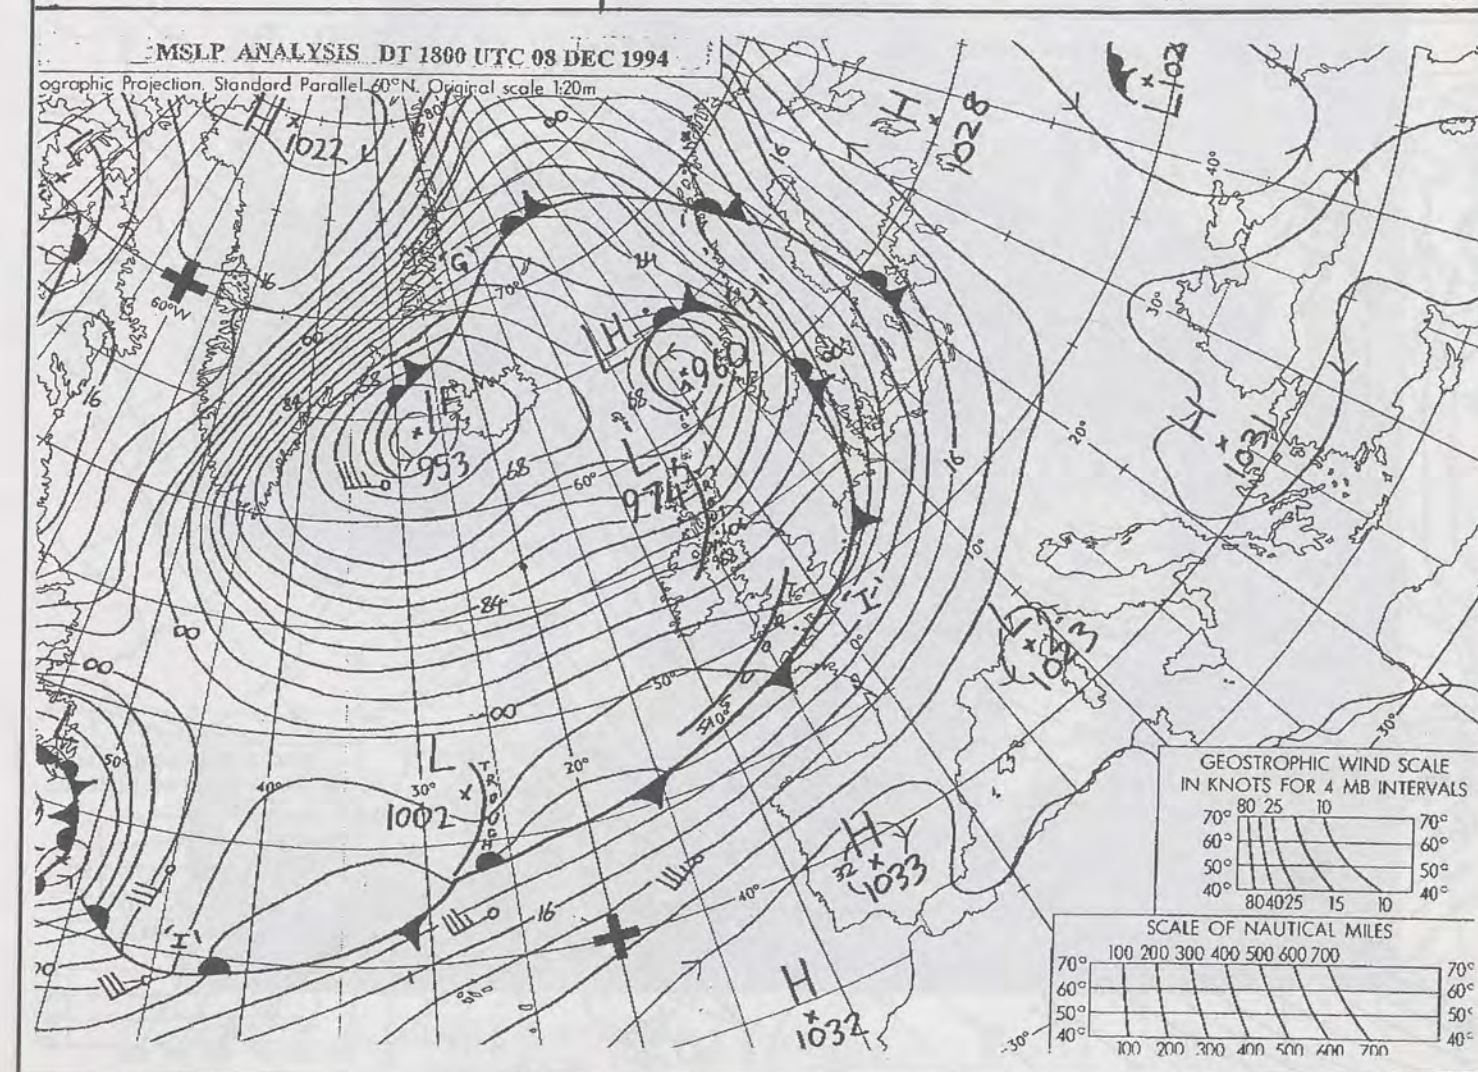 MSLP ANALYSIS DT 1800 UTC 08 DEC 1994
ographic Projection, Standard Parallel 60°N. Original scale 1:20m
H
1022
L
80
80
16
H
1028
L 102
40°
16
60°W
'G'
70°
60
88
84
16
L 'F'
953
68
60°
L 'H'
960
68
L
974
968
8
16
30°
20°
10°
H
1031
L
1023
0°
'I'
84
00
00
00
50°
50°
SI0S
L
1002
TROUGH
40°
30°
20°
'I'
16
40°
H
32
1033
H
1032
30°
30°
GEOSTROPHIC WIND SCALE
IN KNOTS FOR 4 MB INTERVALS
80 25 10
70° 70°
60° 60°
50° 50°
40° 40°
80 40 25 15 10
SCALE OF NAUTICAL MILES
100 200 300 400 500 600 700
70° 70°
60° 60°
50° 50°
40° 40°
100 200 300 400 500 600 700